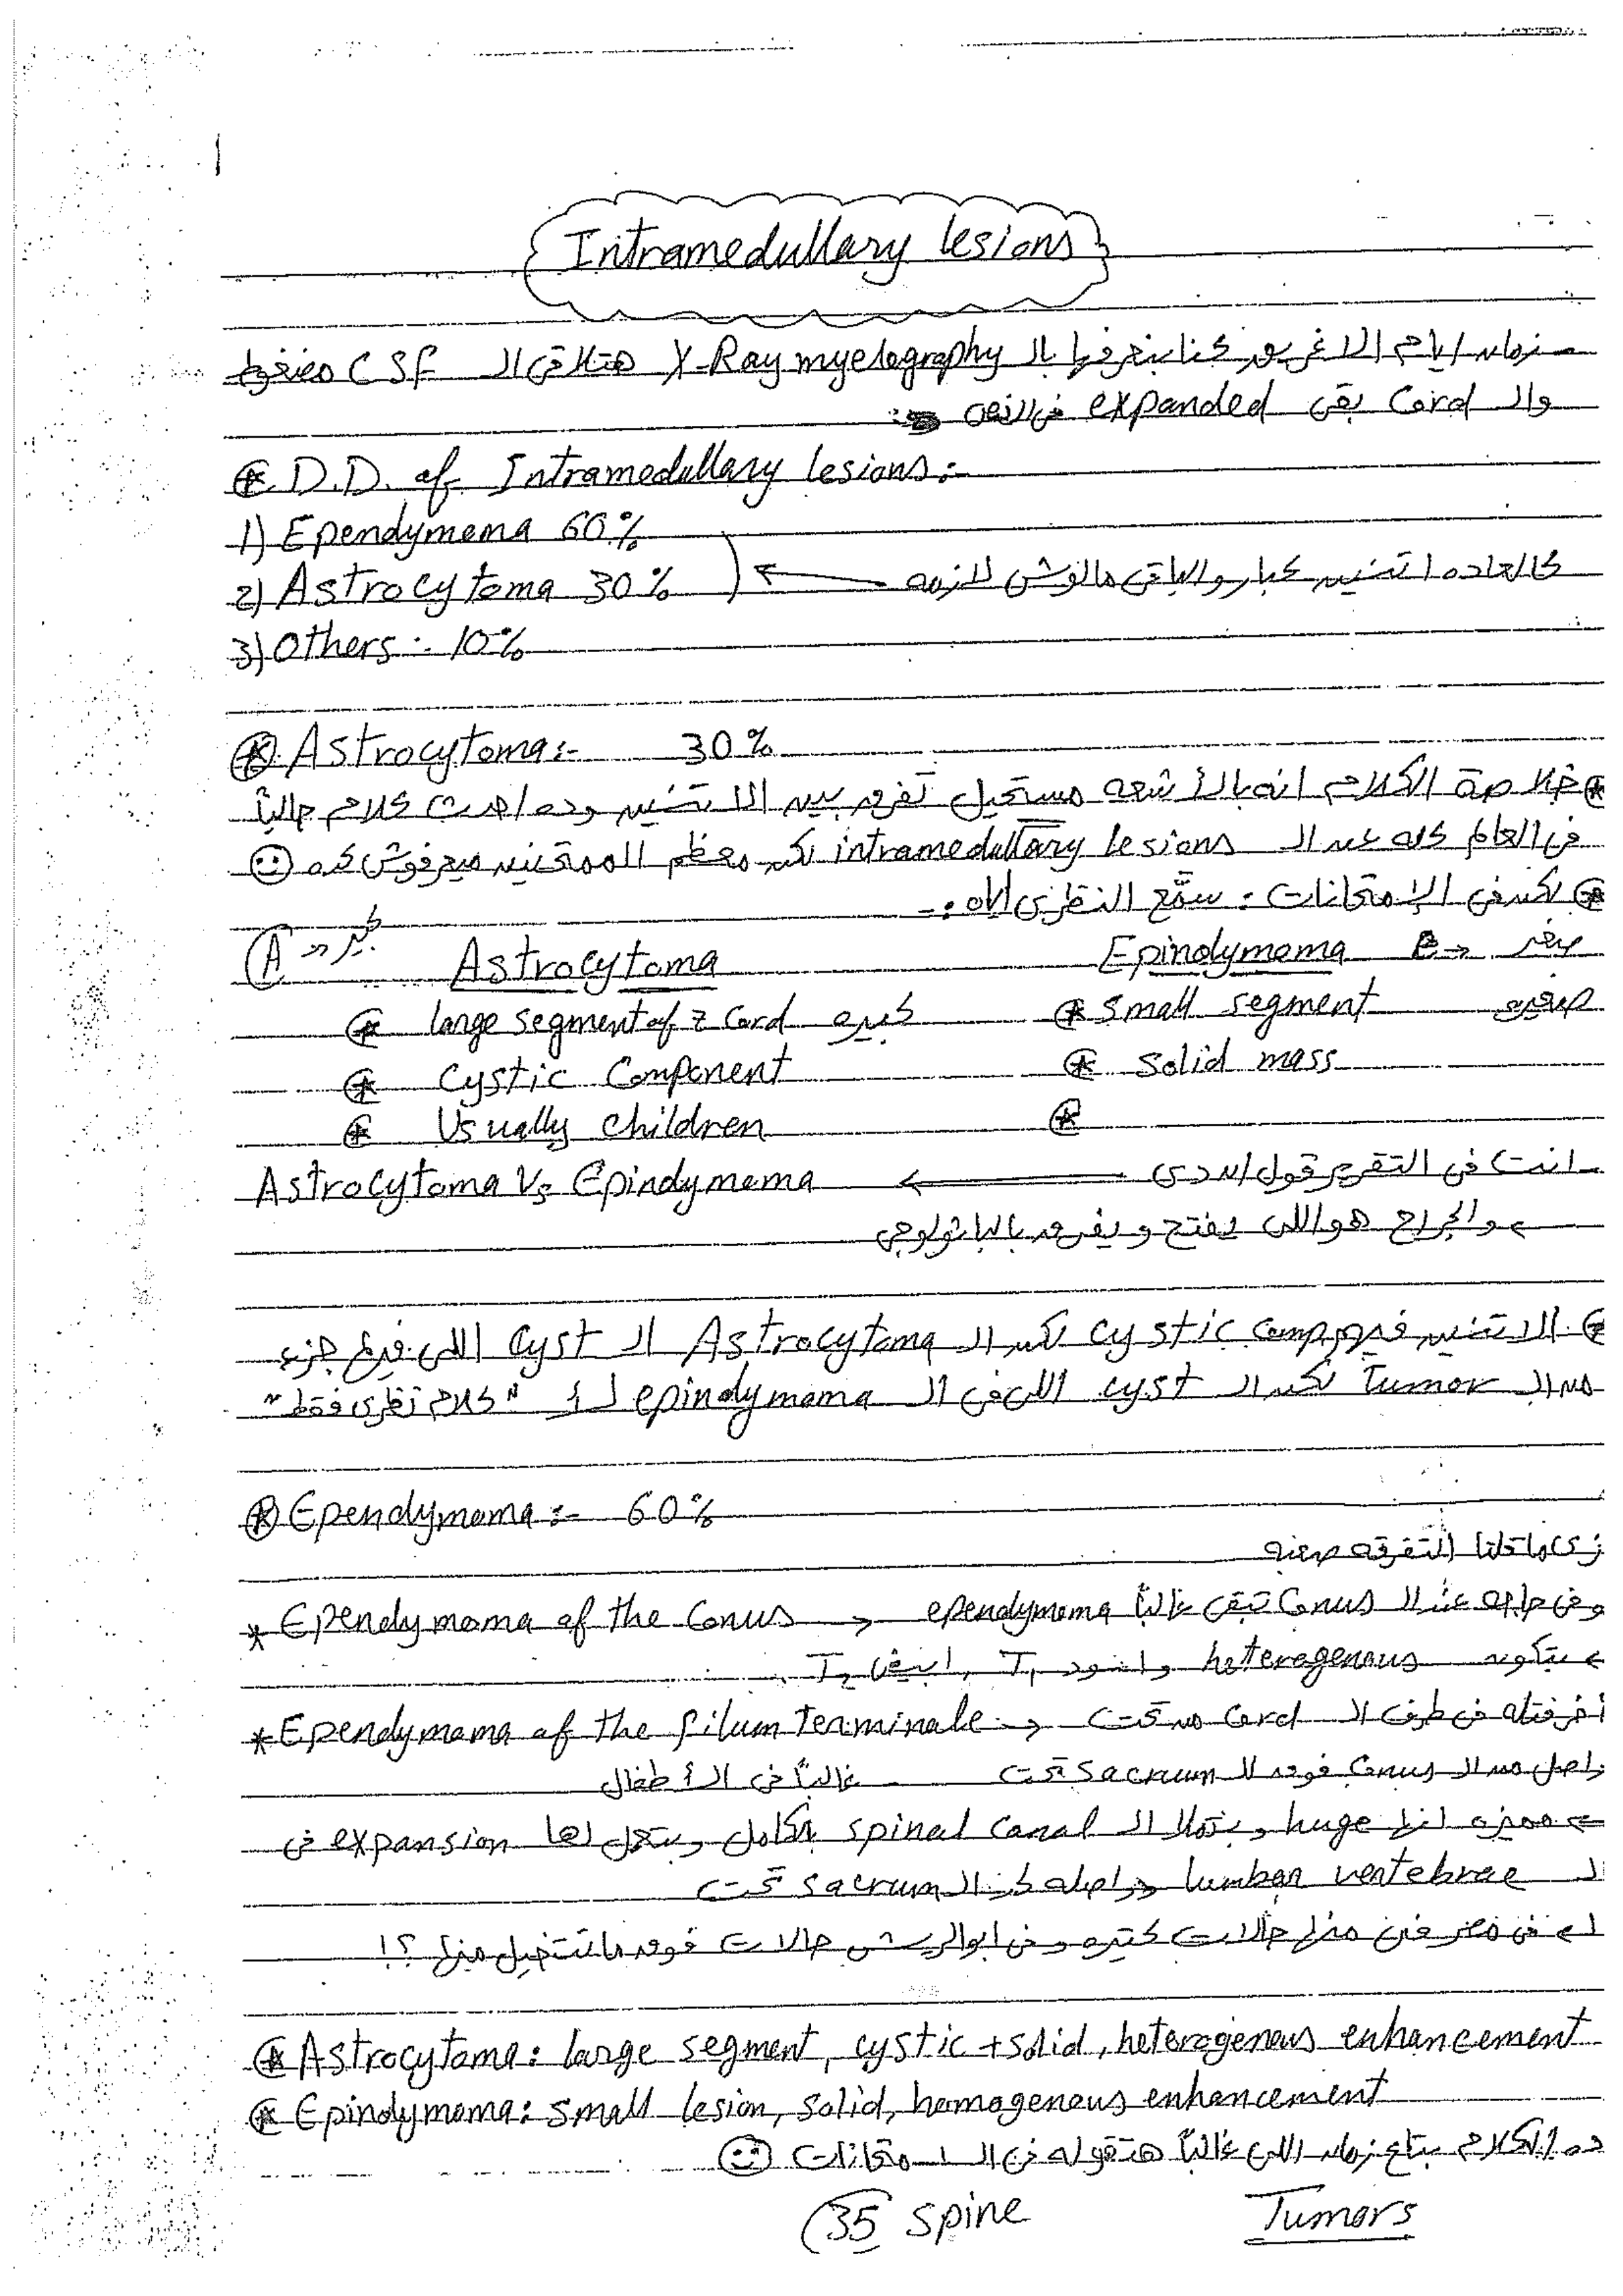 Intramedullary lesions
زمان ايام الاغريق كنا بنعرفها بالـ X-Ray myelography هتلاقى الـ CSF مضغوط
والـ Cord بقى expanded فى النص
D.D. of Intramedullary lesions:-
1) Ependymoma 60%
2) Astrocytoma 30%
كالعاده اتنين كبار والباقى مالوش لازمه
3) Others :- 10%
* Astrocytoma:- 30%
* خلاصة الكلام انه بالأشعه مستحيل تفرق بين الاتنين وده احدث كلام حالياً
فى العالم كله عن الـ intramedullary lesions لكن معظم الممتحنين ميعرفوش كده
* لكن فى الإمتحانات : سمّع النظرى اياه :-
A → كبير Astrocytoma Epindymoma → صغير
* large segment of z Cord كبيره * small segment صغيره
* Cystic Component * Solid mass
* Usually children *
انت فى التقرير قول ان دى ← Astrocytoma Vs Epindymoma
→ والجراح هو اللى يفتح ويفرق بالباثولوجى
* الاتنين فيهم cystic comp لكن الـ Astrocytoma الـ Cyst اللى فيها جزء
من الـ Tumor لكن الـ cyst اللى فى الـ epindymoma لأ "كلام نظرى فقط"
* Ependymoma:- 60%
زى ما قلنا التفرقه صعبه
* Ependymoma of the Conus → وفى حاجه عند الـ Conus تبقى غالباً ependymoma
← بتكون heterogenous واسود T1 , ابيض T2
* Ependymoma of the filum Terminale → فى طرف الـ Cord من تحت
واصل من الـ Conus فوق للـ Sacrum تحت غالباً فى الأطفال
← مميزه انها huge وبتملا الـ spinal canal بالكامل وبتعمل لها expansion فى
الـ lumbar vertebrae وواصله لحد الـ sacrum تحت
فى مصر فى منها حالات كتيره وفى ابو الريش حالات فوق ما تتخيل منها ؟!
* Astrocytoma: large segment, cystic + solid, heterogenous enhancement
* Epindymoma: small lesion, solid, homogenous enhancement
ده الكلام بتاع زمان اللى غالباً هتقوله فى الامتحانات
35 Spine Tumors